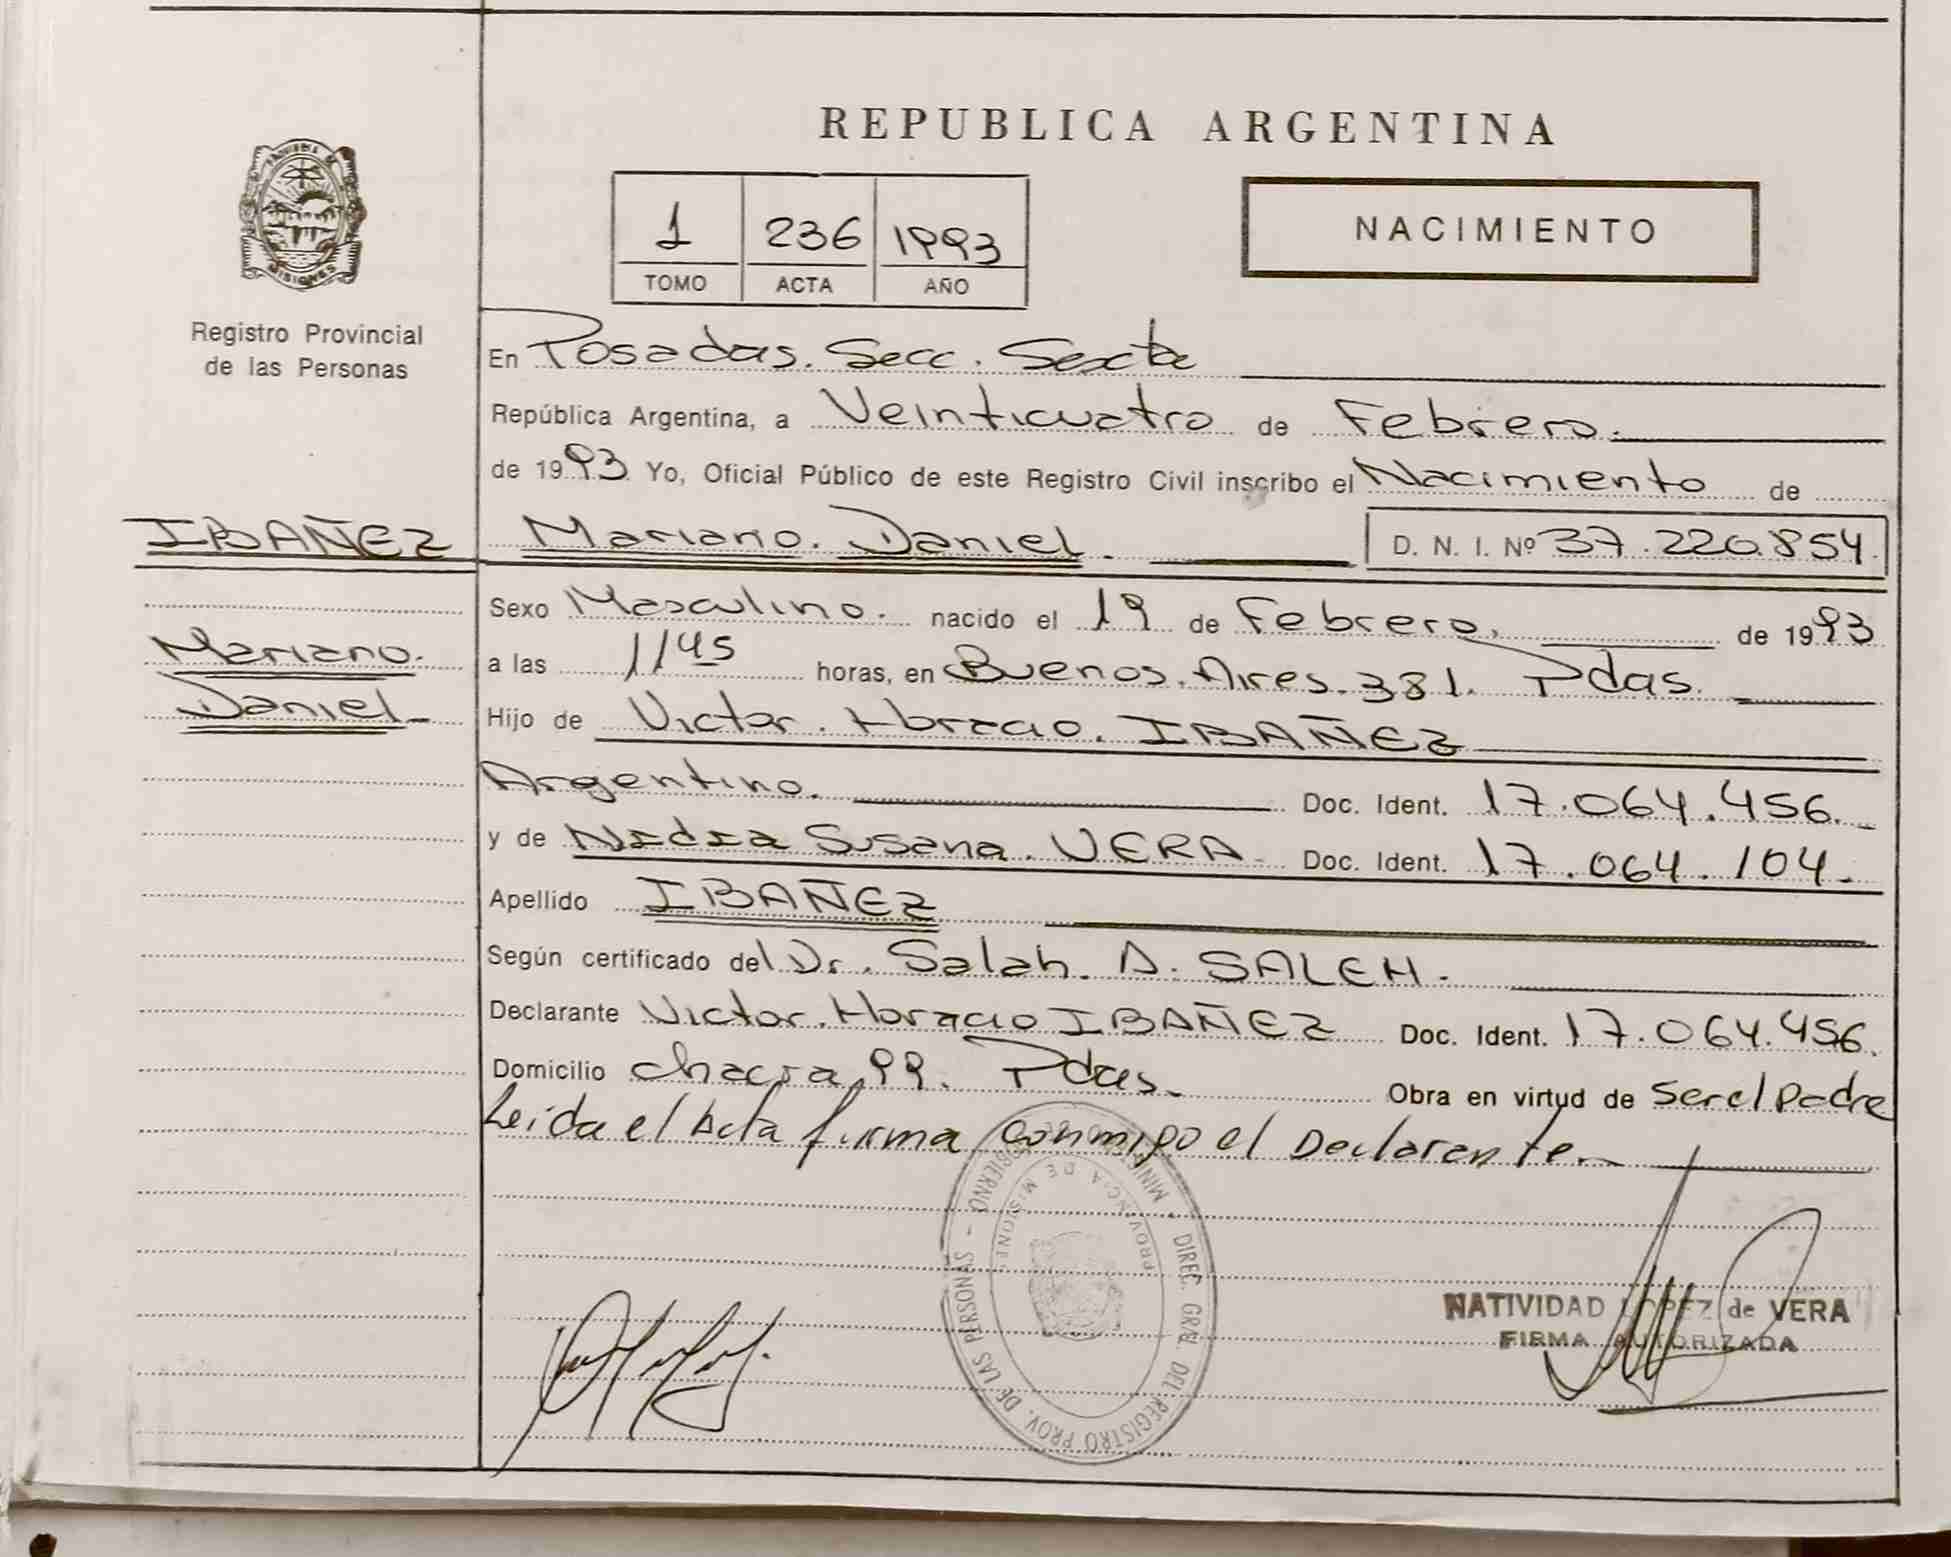 REPUBLICA ARGENTINA
PROVINCIA DE
MISIONES
Registro Provincial
de las Personas
1 236 1993
TOMO ACTA AÑO
NACIMIENTO
En Posadas. Secc. Sexta
República Argentina, a Veinticuatro de Febrero.
de 1993 Yo, Oficial Público de este Registro Civil inscribo el Nacimiento de
IBAÑEZ Mariano. Daniel. D. N. I. Nº 37.220.854.
Sexo Masculino. nacido el 19 de Febrero. de 1993
Mariano.
Daniel
a las 1145 horas, en Buenos. Aires. 381. Pdas.
Hijo de Victor. Horacio. IBAÑEZ
Argentino. Doc. Ident. 17.064.456.
y de Nidia Susana. VERA Doc. Ident. 17.064.104.
Apellido IBAÑEZ
Según certificado del Dr. Salah. A. SALEH.
Declarante Victor. Horacio IBAÑEZ Doc. Ident. 17.064.456.
Domicilio chacra 99. Pdas. Obra en virtud de Ser el Padre
Leida el Acta firma conmigo el Declarante.
MINISTERIO DE GOBIERNO - DIREC. GRAL. DEL REGISTRO PROV. DE LAS PERSONAS -
PROVINCIA DE MISIONES
NATIVIDAD LOPEZ de VERA
FIRMA AUTORIZADA